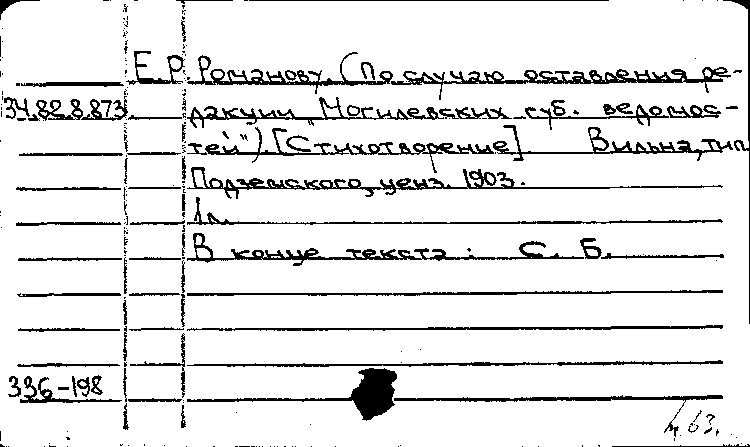 Е. Р. Романову. (По случаю оставления ре-
34.82.8.873. дакции „Могилевских губ. ведомос-
тей"). [Стихотворение] Вильна, тип.
Подземского, ценз. 1903.
1 л.
В конце текста: С. Б.
336-198
63.